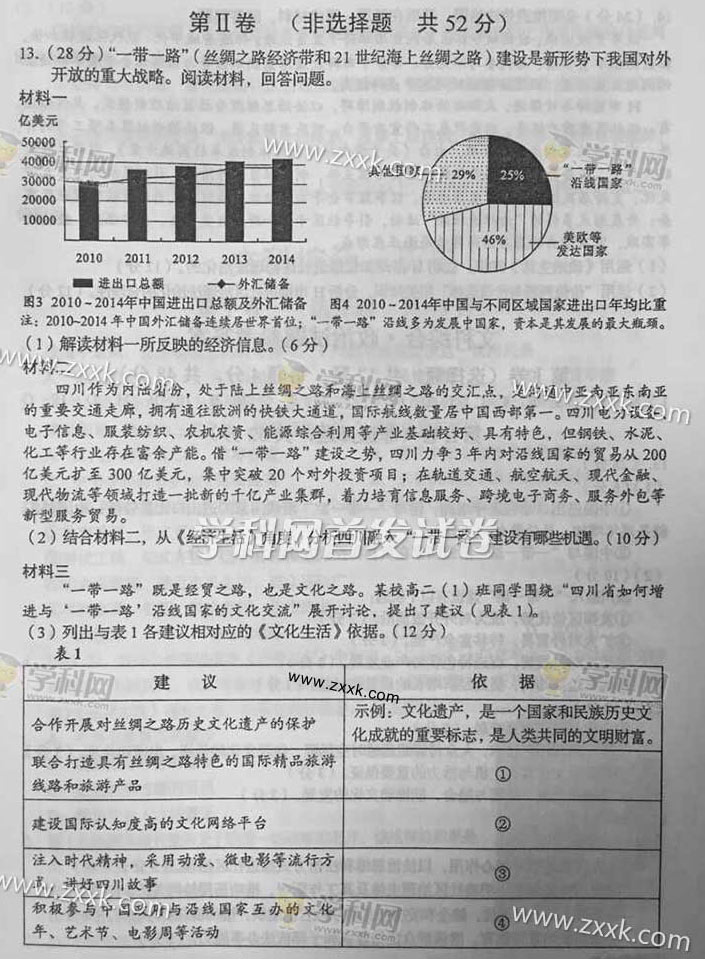 第Ⅱ卷 （非选择题 共52分）
13.（28分）“一带一路”（丝绸之路经济带和21世纪海上丝绸之路）建设是新形势下我国对外
开放的重大战略。阅读材料，回答问题。
材料一
亿美元
50000
40000
30000
20000
10000
2010 2011 2012 2013 2014
进出口总额 外汇储备
其他国家
29%
25%
46%
“一带一路”
沿线国家
美欧等
发达国家
图3 2010~2014年中国进出口总额及外汇储备 图4 2010~2014年中国与不同区域国家进出口年均比重
注：2010~2014年中国外汇储备连续居世界首位；“一带一路”沿线多为发展中国家，资本是其发展的最大瓶颈。
（1）解读材料一所反映的经济信息。（6分）
材料二
四川作为内陆省份，处于陆上丝绸之路和海上丝绸之路的交汇点，是沟通中亚南亚东南亚
的重要交通走廊，拥有通往欧洲的快铁大通道，国际航线数量居中国西部第一。四川电力设备、
电子信息、服装纺织、农机农资、能源综合利用等产业基础较好、具有特色，但钢铁、水泥、
化工等行业存在富余产能。借“一带一路”建设之势，四川力争3年内对沿线国家的贸易从200
亿美元扩至300亿美元，集中突破20个对外投资项目；在轨道交通、航空航天、现代金融、
现代物流等领域打造一批新的千亿产业集群，着力培育信息服务、跨境电子商务、服务外包等
新型服务贸易。
（2）结合材料二，从《经济生活》角度，分析四川融入“一带一路”建设有哪些机遇。（10分）
材料三
“一带一路”既是经贸之路，也是文化之路。某校高二（1）班同学围绕“四川省如何增
进与‘一带一路’沿线国家的文化交流”展开讨论，提出了建议（见表1）。
（3）列出与表1各建议相对应的《文化生活》依据。（12分）
表1
建 议 依 据
合作开展对丝绸之路历史文化遗产的保护
示例：文化遗产，是一个国家和民族历史文
化成就的重要标志，是人类共同的文明财富。
联合打造具有丝绸之路特色的国际精品旅游
线路和旅游产品
①
建设国际认知度高的文化网络平台 ②
注入时代精神，采用动漫、微电影等流行方
式，讲好四川故事
③
积极参与中国政府与沿线国家互办的文化
年、艺术节、电影周等活动
④
学科网
www.zxxk.com
学科网
www.zxxk.com
学科网首发试卷
www.zxxk.com
学科网
www.zxxk.com
学科网
www.zxxk.com
学科网
www.zxxk.com